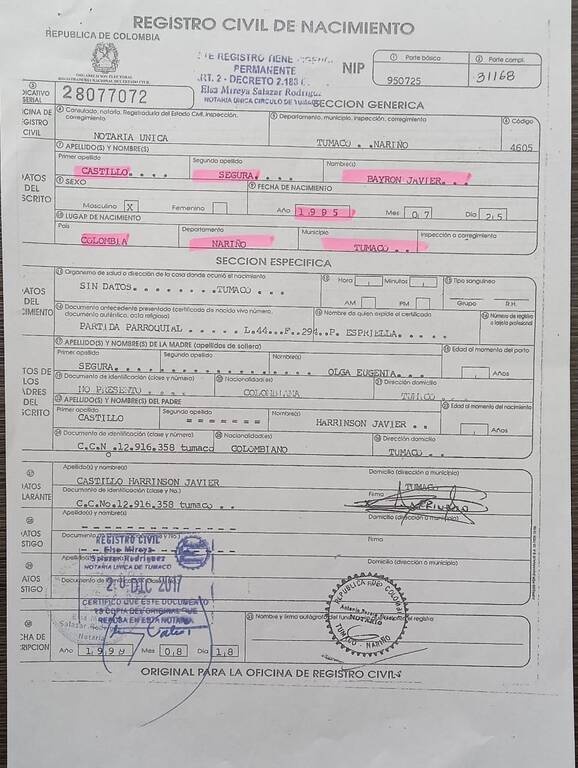 REGISTRO CIVIL DE NACIMIENTO
REPUBLICA DE COLOMBIA
ORGANIZACION ELECTORAL
REGISTRADURIA NACIONAL DEL ESTADO CIVIL
REGISTRO TIENE
PERMANENTE
ART. 2 - DECRETO 2.183
Elsa Mireya Salazar Rodrigu
NOTARIA UNICA CIRCULO DE TUMACO
NIP
1 Parte básica
950725
2 Parte compl.
31168
3
DICATIVO
SERIAL
28077072
SECCION GENERICA
CINA DE
EGISTRO
CIVIL
4 Consulado, notaría, Registraduría del Estado Civil, inspección, corregimiento
NOTARIA UNICA
5 Departamento, municipio, inspección, corregimiento
TUMACO . .NARIÑO
6 Código
4605
7 APELLIDO(S) Y NOMBRE(S)
DATOS
DEL
SCRITO
Primer apellido
CASTILLO. . . .
Segundo apellido
SEGURA. . . .
Nombre(s)
BAYRON JAVIER. . .
8 SEXO
Masculino X
Femenino
9 FECHA DE NACIMIENTO
Año 1.995
Mes 0.7
Día 2.5
10 LUGAR DE NACIMIENTO
País
COLOMBIA
Departamento
NARIÑO
Municipio
TUMACO
Inspección o corregimiento
SECCION ESPECIFICA
DATOS
DEL
CIMIENTO
11 Organismo de salud o dirección de la casa donde ocurrió el nacimiento
SIN DATOS. . . . . . . .TUMACO . . .
12 Hora
Minutos
AM
PM
13 Tipo sanguíneo
Grupo
R.H.
14 Documento antecedente presentado (certificado de nacido vivo número, documento auténtico, acta religiosa)
PARTIDA PARROQUIAL . . . . . L.44...F..294..P. ESPRIELLA. . . . .
15 Nombre de quien expide el certificado
16 Número de registro o tarjeta profesional
17 APELLIDO(S) Y NOMBRE(S) DE LA MADRE (apellidos de soltera)
TOS DE
LOS
ADRES
DEL
SCRITO
Primer apellido
SEGURA. . . .
Segundo apellido
Nombre(s)
OLGA EUGENIA. . . .
18 Edad al momento del parto
Años
19 Documento de identificación (clase y número)
NO PRESENTO
20 Nacionalidad(es)
COLOMBIANA
21 Dirección domicilio
TUMACO
22 APELLIDO(S) Y NOMBRE(S) DEL PADRE
Primer apellido
CASTILLO
Segundo apellido
- - - - - - -
Nombre(s)
HARRINSON JAVIER . .
23 Edad al momento del nacimiento
Años
24 Documento de identificación (clase y número)
C.C.N .12.916.358 tumaco
25 Nacionalidad(es)
COLOMBIANO
26 Dirección domicilio
TUMACO. . .
27
DATOS
CLARANTE
Apellido(s) y nombre(s)
CASTILLO HARRINSON JAVIER
Domicilio (dirección a municipio)
TUMACO
Documento de identificación (clase y No.)
C.C.No.12.916.358 tumaco . .
Firma
28
DATOS
STIGO
Apellido(s) y nombre(s)
Domicilio (dirección a municipio)
Firma
29
DATOS
STIGO
Apellido(s)
Documento de
REGISTRO CIVIL
Elsa Mireya
Salazar Rodríguez
NOTARIA UNICA DE TUMACO
20 DIC 2017
CERTIFICO QUE ESTE DOCUMENTO
ES COPIA DEL ORIGINAL QUE
REPOSA EN ESTA NOTARIA
REPUBLICA DE COLOMBIA
NOTARIO
TUMACO - NARIÑO
CHA DE
RIPCION
Año 1.999
Mes 0.8
Día 1.8
31 Nombre y firma autógrafa del funcionario
el registro
ORIGINAL PARA LA OFICINA DE REGISTRO CIVIL